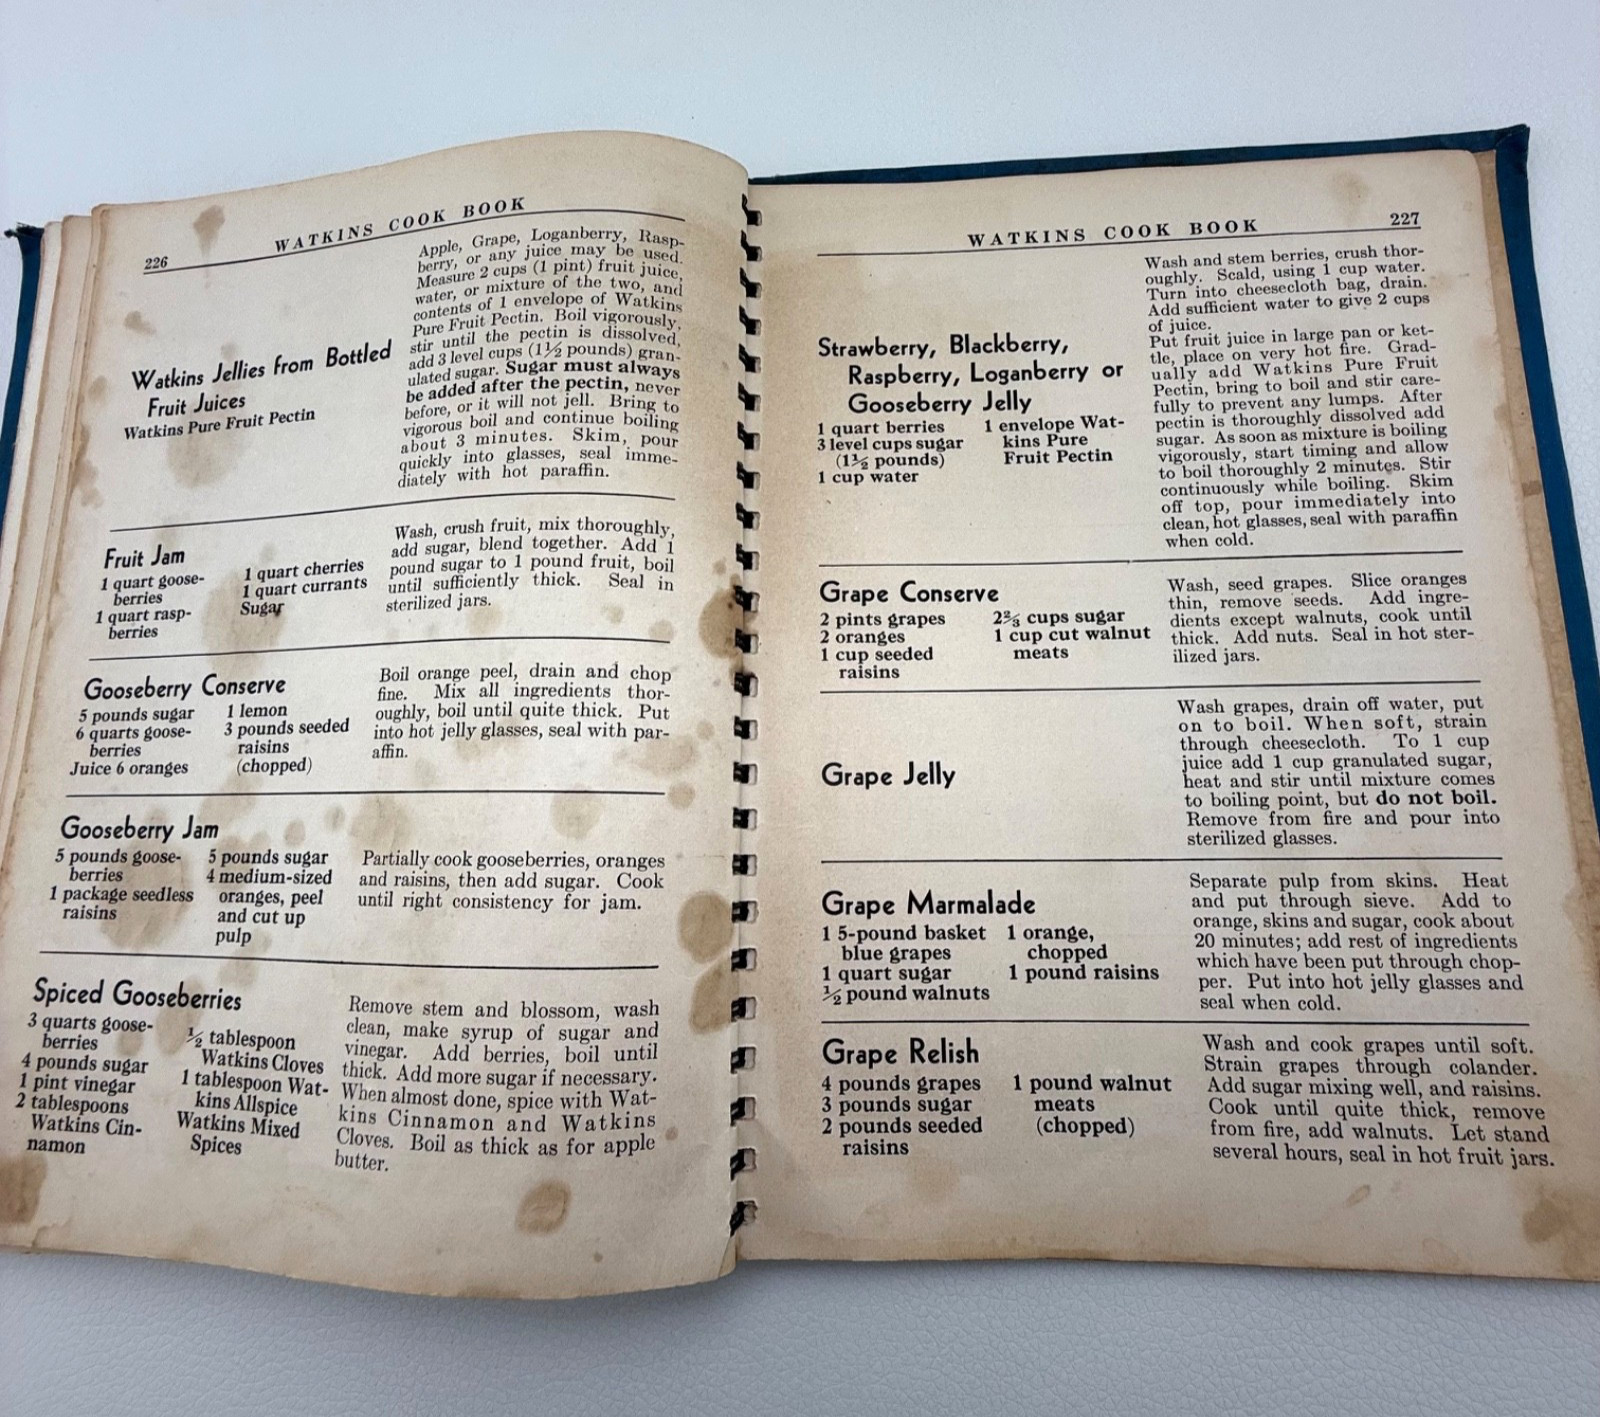 226
WATKINS COOK BOOK
Watkins Jellies from Bottled
Fruit Juices
Watkins Pure Fruit Pectin
Apple, Grape, Loganberry, Rasp-
berry, or any juice may be used.
Measure 2 cups (1 pint) fruit juice,
water, or mixture of the two, and
contents of 1 envelope of Watkins
Pure Fruit Pectin. Boil vigorously,
stir until the pectin is dissolved,
add 3 level cups (1½ pounds) gran-
ulated sugar. Sugar must always
be added after the pectin, never
before, or it will not jell. Bring to
vigorous boil and continue boiling
about 3 minutes. Skim, pour
quickly into glasses, seal imme-
diately with hot paraffin.
Fruit Jam
1 quart goose-
berries
1 quart rasp-
berries
1 quart cherries
1 quart currants
Sugar
Wash, crush fruit, mix thoroughly,
add sugar, blend together. Add 1
pound sugar to 1 pound fruit, boil
until sufficiently thick. Seal in
sterilized jars.
Gooseberry Conserve
5 pounds sugar
6 quarts goose-
berries
Juice 6 oranges
1 lemon
3 pounds seeded
raisins
(chopped)
Boil orange peel, drain and chop
fine. Mix all ingredients thor-
oughly, boil until quite thick. Put
into hot jelly glasses, seal with par-
affin.
Gooseberry Jam
5 pounds goose-
berries
1 package seedless
raisins
5 pounds sugar
4 medium-sized
oranges, peel
and cut up
pulp
Partially cook gooseberries, oranges
and raisins, then add sugar. Cook
until right consistency for jam.
Spiced Gooseberries
3 quarts goose-
berries
4 pounds sugar
1 pint vinegar
2 tablespoons
Watkins Cin-
namon
½ tablespoon
Watkins Cloves
1 tablespoon Wat-
kins Allspice
Watkins Mixed
Spices
Remove stem and blossom, wash
clean, make syrup of sugar and
vinegar. Add berries, boil until
thick. Add more sugar if necessary.
When almost done, spice with Wat-
kins Cinnamon and Watkins
Cloves. Boil as thick as for apple
butter.
WATKINS COOK BOOK
227
Strawberry, Blackberry,
Raspberry, Loganberry or
Gooseberry Jelly
1 quart berries
3 level cups sugar
(1½ pounds)
1 cup water
1 envelope Wat-
kins Pure
Fruit Pectin
Wash and stem berries, crush thor-
oughly. Scald, using 1 cup water.
Turn into cheesecloth bag, drain.
Add sufficient water to give 2 cups
of juice.
Put fruit juice in large pan or ket-
tle, place on very hot fire. Grad-
ually add Watkins Pure Fruit
Pectin, bring to boil and stir care-
fully to prevent any lumps. After
pectin is thoroughly dissolved add
sugar. As soon as mixture is boiling
vigorously, start timing and allow
to boil thoroughly 2 minutes. Stir
continuously while boiling. Skim
off top, pour immediately into
clean, hot glasses, seal with paraffin
when cold.
Grape Conserve
2 pints grapes
2 oranges
1 cup seeded
raisins
2⅔ cups sugar
1 cup cut walnut
meats
Wash, seed grapes. Slice oranges
thin, remove seeds. Add ingre-
dients except walnuts, cook until
thick. Add nuts. Seal in hot ster-
ilized jars.
Grape Jelly
Wash grapes, drain off water, put
on to boil. When soft, strain
through cheesecloth. To 1 cup
juice add 1 cup granulated sugar,
heat and stir until mixture comes
to boiling point, but do not boil.
Remove from fire and pour into
sterilized glasses.
Grape Marmalade
1 5-pound basket
blue grapes
1 quart sugar
½ pound walnuts
1 orange,
chopped
1 pound raisins
Separate pulp from skins. Heat
and put through sieve. Add to
orange, skins and sugar, cook about
20 minutes; add rest of ingredients
which have been put through chop-
per. Put into hot jelly glasses and
seal when cold.
Grape Relish
4 pounds grapes
3 pounds sugar
2 pounds seeded
raisins
1 pound walnut
meats
(chopped)
Wash and cook grapes until soft.
Strain grapes through colander.
Add sugar mixing well, and raisins.
Cook until quite thick, remove
from fire, add walnuts. Let stand
several hours, seal in hot fruit jars.